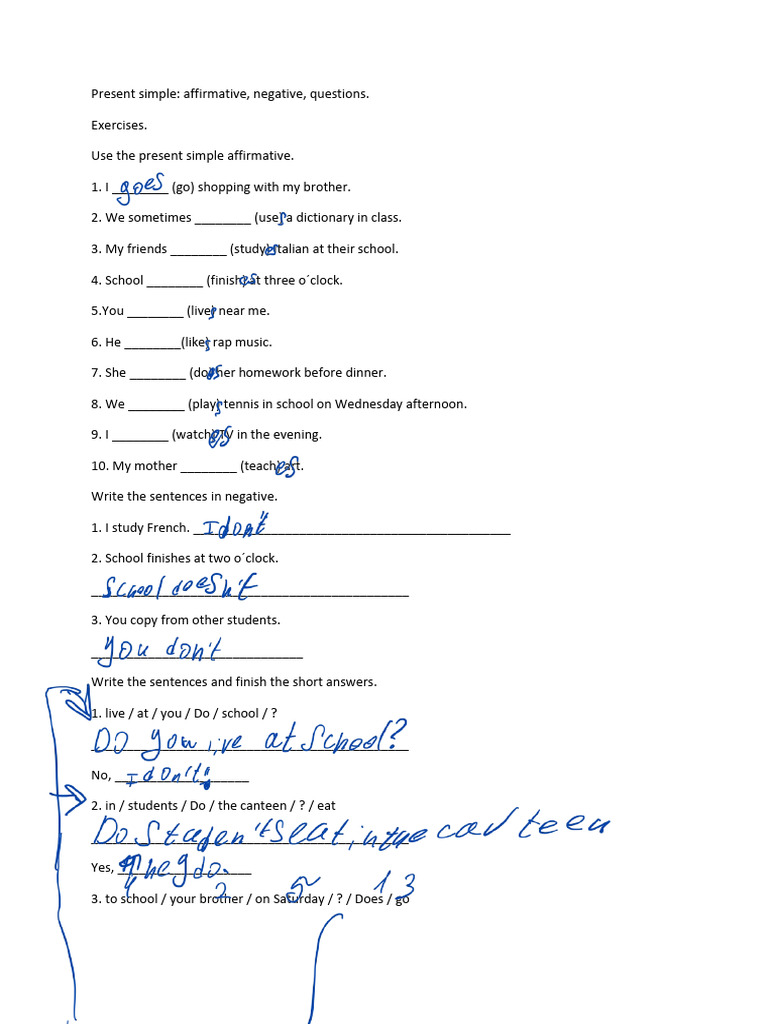 Present simple: affirmative, negative, questions.
Exercises.
Use the present simple affirmative.
1. I goes (go) shopping with my brother.
2. We sometimes ________ (use) s a dictionary in class.
3. My friends ________ (study) es Italian at their school.
4. School ________ (finish) es at three o´clock.
5.You ________ (live) s near me.
6. He ________(like) s rap music.
7. She ________ (do) es her homework before dinner.
8. We ________ (play) s tennis in school on Wednesday afternoon.
9. I ________ (watch) es TV in the evening.
10. My mother ________ (teach) es art.
Write the sentences in negative.
1. I study French. I don't
2. School finishes at two o´clock.
School doesn't
3. You copy from other students.
you don't
Write the sentences and finish the short answers.
1. live / at / you / Do / school / ?
Do you live at School?
No, I don't!
2. in / students / Do / the canteen / ? / eat
Do eat, in the
Yes, they do.
4 2 5 1 3
3. to school / your brother / on Saturday / ? / Does / go